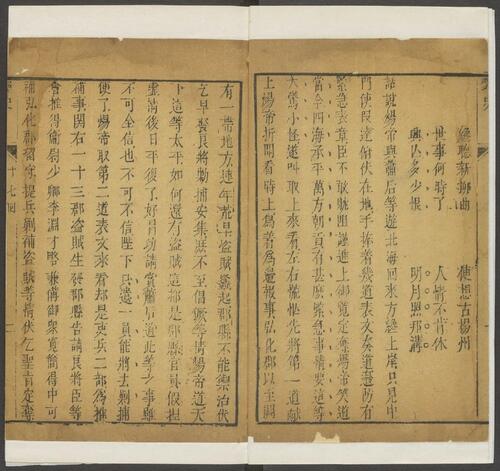 纔聽新撾曲
便想古揚州
世事何時了
人情不肯休
興亡多少恨
明月照邗溝
話說煬帝與蕭后等遊北海回來方纔上岸只見中
門使段達俯伏在地手捧着幾道表文奏道邊防有
緊急表章臣不敢阻滯進上御覽定奪煬帝笑道
當今四海承平萬方朝貢有甚麼緊急事情要這等
大驚小怪道叫取上來看左右慌忙先將第一道獻
上煬帝拆開看時上寫着爲邊報事弘化郡以至關
有一帶地方連年荒旱盜賊蠭起郡縣不能禦治伏
乞早發良將勦捕安集庶不至倡獗等情煬帝道天
下這等太平如何還有盜賊這都是郡縣官員假捏
虛滿後日平復了好冒功請賞蕭后道此等之事雖
不可全信也不可不信陛下只遣一員能將去剿捕
便了煬帝取第二道表文來看却是吏兵二部爲推
補事關右一十三郡盜賊生發郡縣告請良將臣等
會推得衛尉少卿李淵才略兼備御衆寬簡得中可
補弘化郡留守提兵剿捕盜賊等情伏乞聖旨定奪
史
十七回